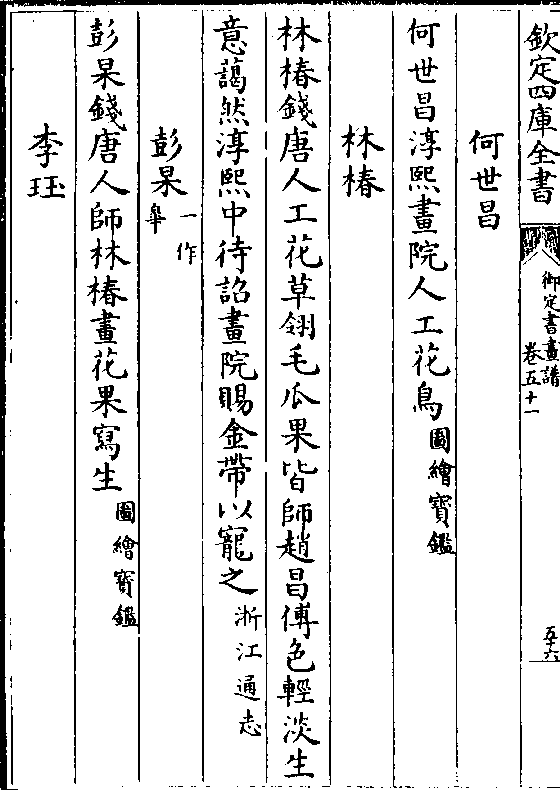 欽定四庫全書
御定書畫譜
卷五十一
五十六
何世昌
何世昌淳熙畫院人工花鳥圖繪寶鑑
林椿
林椿錢唐人工花草翎毛瓜果皆師趙昌傅色輕淡生
意藹然淳熙中待詔畫院賜金帶以寵之浙江通志
彭杲一作皋
彭杲錢唐人師林椿畫花果寫生圖繪寶鑑
李珏